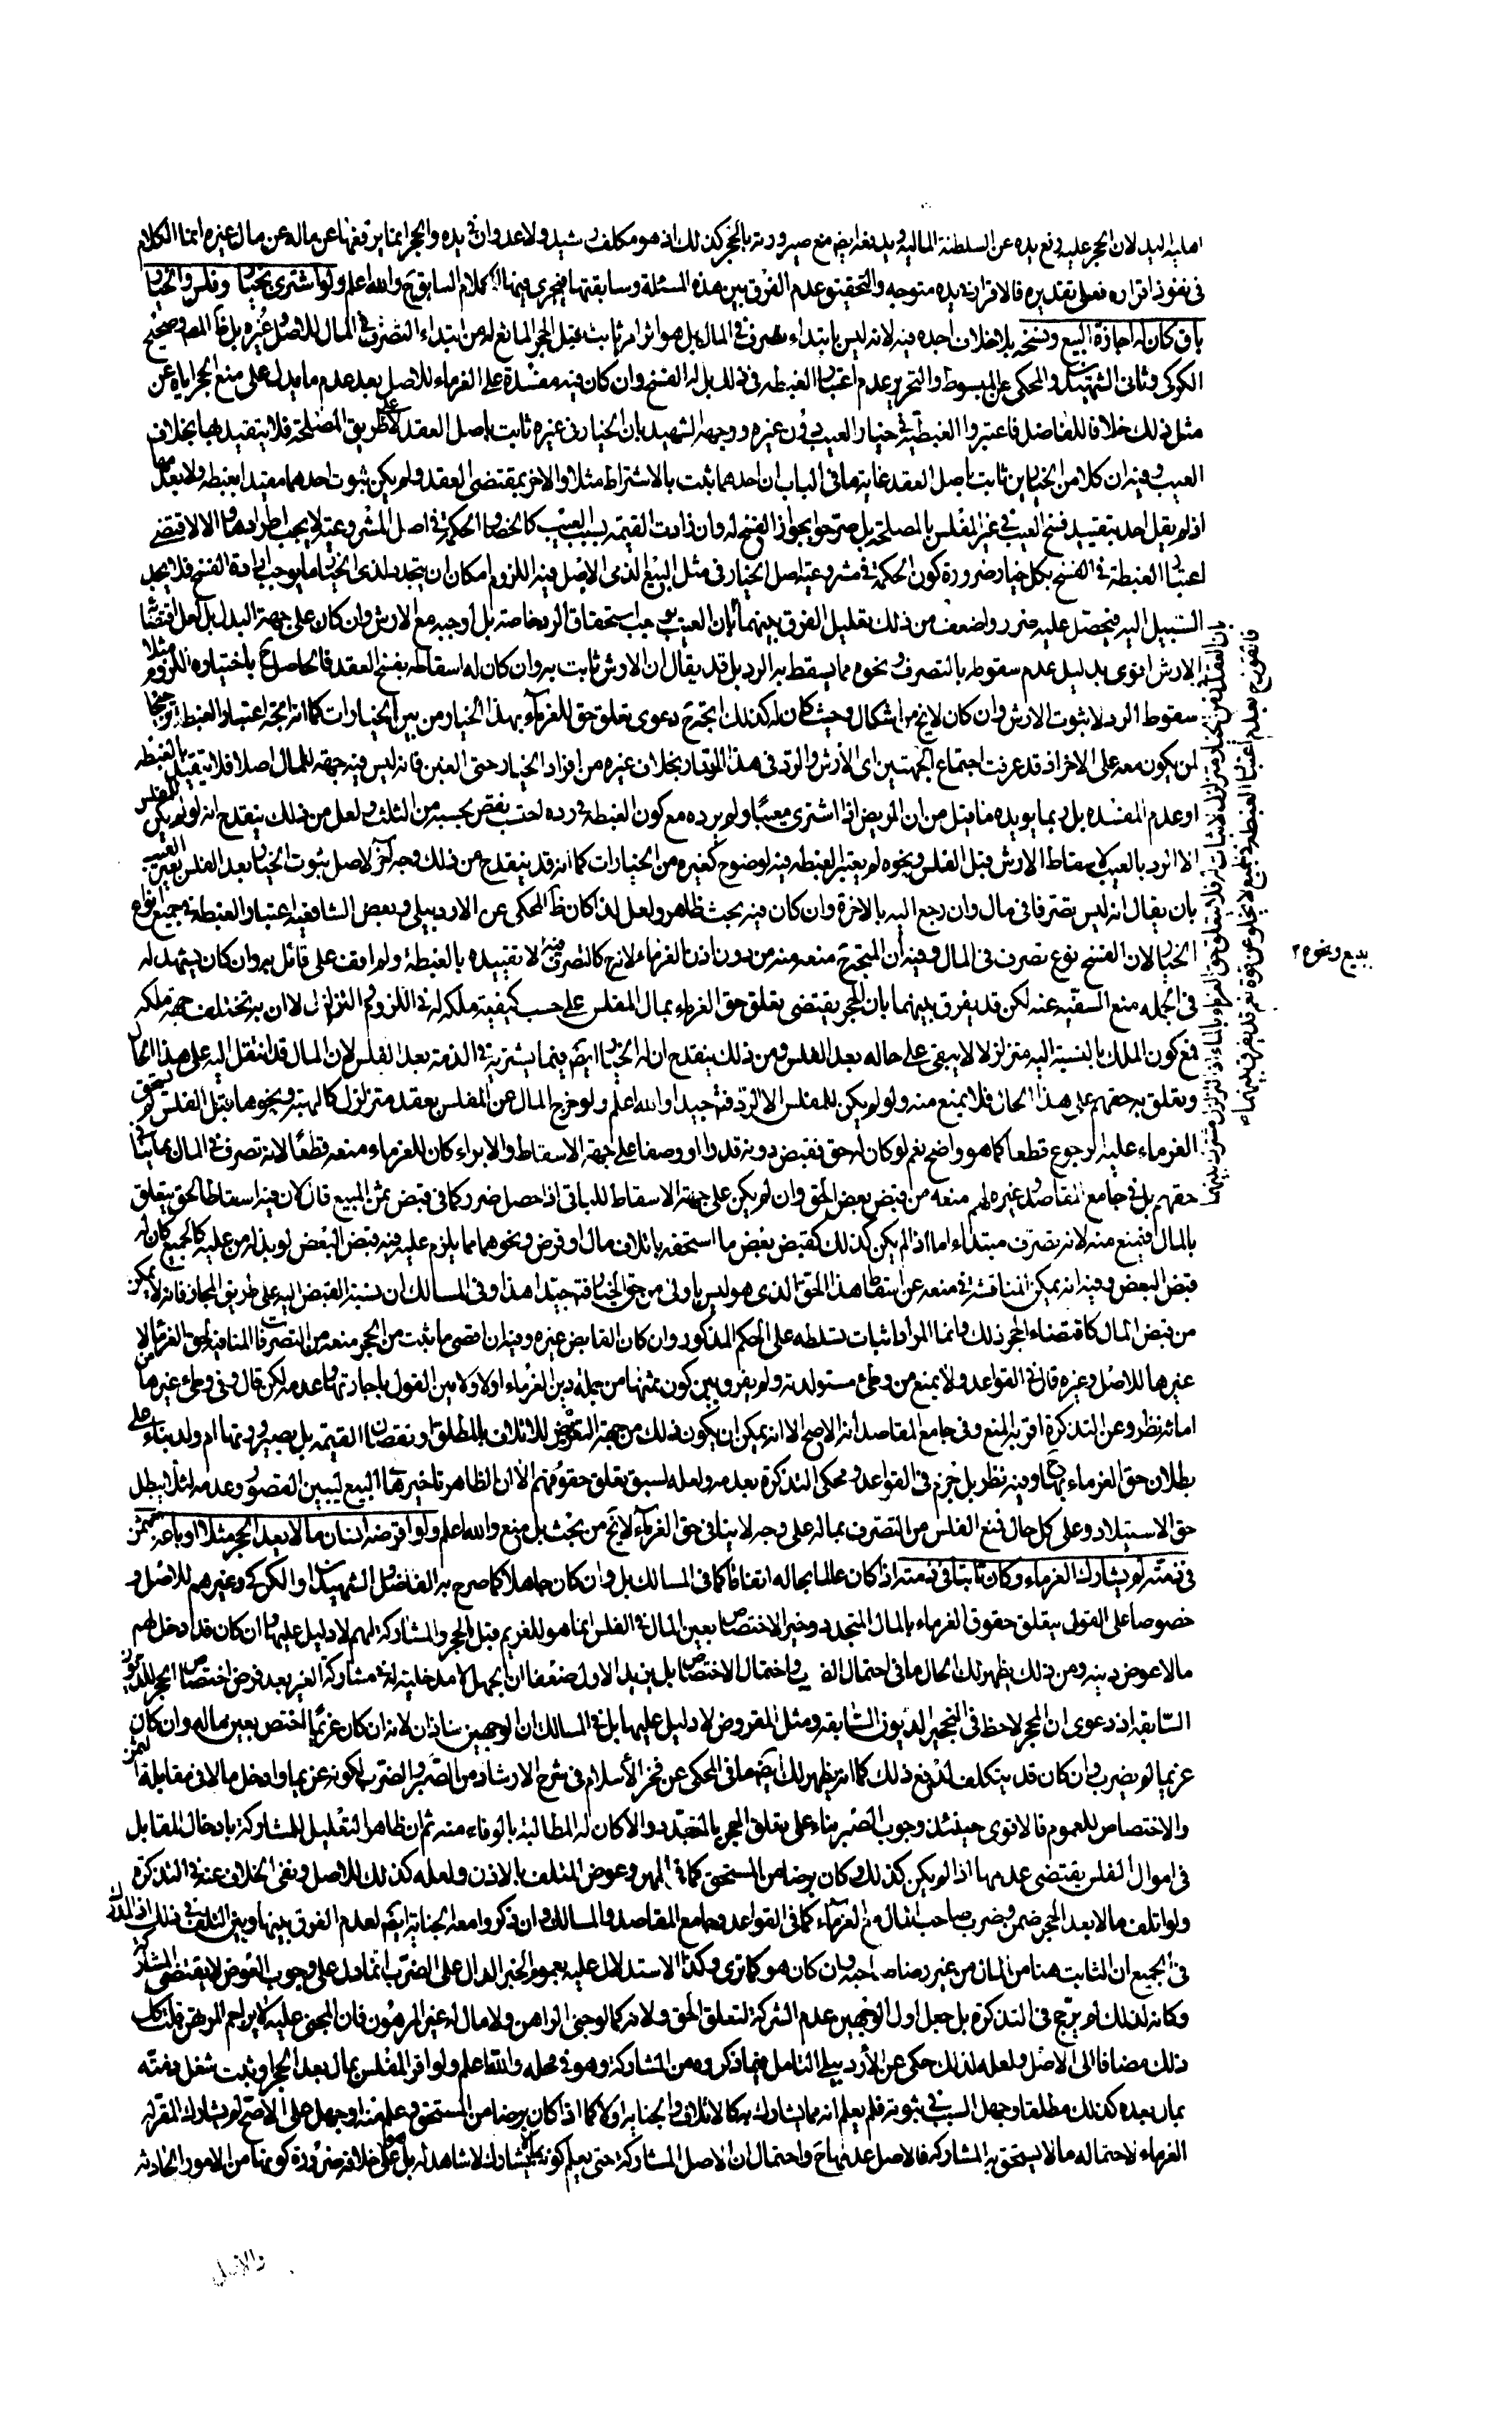 اهلية اليد لان الحجر عليه رفع يده عن السلطنة المالية ويدفعه ايضا منع صيرورته بالحجر كذلك اذ هو مكلف رشيد ولا عدوان في يده والحجر انما يرفعها عن ماله عن مال غيره انما الكلام
في نفوذ اقراره فعلى تقديره فالاقرار في يده متوجه والتحقيق عدم الفرق بين هذه المسئلة وسابقتها فيجري فيها الكلام السابق ح والله اعلم ولو اشترى بخيار وفلس والخيار
باق كان له اجازة البيع وفسخه بلا خلاف اجده فيه لانه ليس بابتداء تصرف في المال بل هو اثر امر ثابت قبل الحجر المانع له من ابتداء التصرف في المال للاصل وغيره بل ظاهر المص وصريح
الكركي وثاني الشهيدين والمحكي عن المبسوط والتحرير عدم اعتبار الغبطه في ذلك بل له الفسخ وان كان فيه مفسدة على الغرماء للاصل بعد عدم ما يدل على منع الحجر اياه عن
مثل ذلك خلافا للفاضل فاعتبروا الغبطة في خيار العيب دون غيره ووجهه الشهيد بان الخيار في غيره ثابت باصل العقد لا على طريق المصلحة فلا يتقيد بها بخلاف
العيب وفيه ان كلا من الخيارين ثابت باصل العقد غايته ما في الباب ان احدهما ثبت بالاشتراط مثلا والاخر بمقتضى العقد ولم يكن ثبوت احدهما مقيدا بغبطه ولا بعدمها
اذ لم يقل احد بتقييد فسخ العيب في غير المفلس بالمصلحة بل صرحوا بجواز الفسخ له وان زادت القيمة بسبب العيب كالخصاء والحكمة في اصل المشروعية لا يجب اطرادها والا لاقتضى
اعتبار الغبطة في الفسخ بكل خيار ضرورة كون الحكمة في مشروعية اصل الخيار في مثل البيع الذي الاصل فيه اللزوم امكان ان يتجدد لذي الخيار ما يوجب ارادة الفسخ فلا يجد
السبيل اليه فيحصل عليه ضرر واضعف من ذلك تعليل الفرق بينهما بان العيب يوجب استحقاق الرد خاصة بل اوجبه مع الارش وان كان على جهة البدل بل لعل اقتضاء
الارش اقوى بدليل عدم سقوطه بالتصرف ونحوه مما يسقط به الرد بل قد يقال ان الارش ثابت به وان كان له اسقاطه بفسخ العقد فالحاصل ح باختياره اللزوم مثلا
سقوط الرد لا ثبوت الارش وان كان لا يخ من اشكال وحيث كان له كذلك اتجه ح دعوى تعلق حق للغرماء بهذا الخيار من بين الخيارات كما انه اتجه اعتبار الغبطة ترجيحا
لمن يكون معه على الاخر اذ قد عرفت اجتماع الجهتين اي الارش والرد في هذا الموثار بخلاف غيره من افراد الخيار حتى الغبن فانه ليس فيه جهة للمال اصلا فلا يتقيد بالغبطه
او عدم المفسده بل ربما يؤيده ما قيل من ان المريض اذا اشترى معيبا ولم يرده مع كون الغبطة في رده احتسب نقص بحسبه من الثلث ولعل من ذلك ينقدح انه لو لم يكن للمفلس
الا الرد بالعيب لاسقاط الارش قبل الفلس ونحوه لم يعتبر الغبطه فيه لوضوح كغيره من الخيارات كما انه قد ينقدح من ذلك وجه اخر لاصل ثبوت الخيار بعد الفلس بغير العيب
بان يقال انه ليس تصرفا في مال وان رجع اليه بالاخرة وان كان فيه بحث ظاهر ولعل لذا كان ظ المحكي عن الاردبيلي وبعض الشافعية اعتبار الغبطة في جميع انواع
الخيار لان الفسخ نوع تصرف في المال وفيه ان المتجه ح منعه منه من دون اذن الغرماء لانه ح كالتصرف فيه لا تقييده بالغبطة ولم اقف على قائل به وان كان يشهد له
في الجمله منع السفيه عنه لكن قد يفرق بينهما بان الحجر يقتضي تعلق حق الغرماء بمال المفلس على حسب كيفية ملكه له في اللزوم والتزلزل لا ان به تختلف جهة ملكه
فمع كون الملك بالنسبة اليه متزلزلا لا يبقى على حاله بعد الفلس ومن ذلك ينقدح ان له الخيار ايضا فيما يشتريه في الذمة بعد الفلس لان المال قد انتقل اليه على هذا الحال
وتعلق به حقهم على هذا الحال فلا يمنع منه ولو لم يكن للمفلس الا الرد فته جيدا والله اعلم ولو خرج المال عن المفلس بعقد متزلزل كالهبة ونحوها قبل الفلس لم يستحق
الغرماء عليه الرجوع قطعا كما هو واضح نعم لو كان له حق فقبض دونه قدرا او وصفا على جهة الاسقاط والابراء كان للغرماء منعه قطعا لانه تصرف في المال بما ينافي
حقهم بل في جامع المقاصد وغيره لهم منعه من قبض بعض الحق وان لم يكن على جهة الاسقاط للباقي اذا حصل ضرر كما في قبض ثمن المبيع قال لان فيه اسقاطا لحق يتعلق
بالمال فيمنع منه لانه تصرف مبتداء اما اذا لم يكن كذلك كقبض بعض ما استحقه باتلاف مال او قرض ونحوهما مما يلزم عليه فيه قبض البعض لو بذله من عليه كالجميع كان له
قبض البعض وفيه انه يمكن المناقشة في منعه عن اسقاط هذا الحق الذي هو ليس باولى من حق الخيار فته جيدا هذا وفي المسالك ان نسبة القبض اليه على طريق المجاز فانه لا يمكن
من قبض المال كاقتضاء الحجر ذلك وانما المراد اثبات تسلطه على الحكم المذكور وان كان القابض غيره وفيه ان اقصى ما ثبت من الحجر منعه من التصرفات المنافية لحق الغرماء لا
غيرها للاصل وغيره قال في القواعد ولا يمنع من وطي مستولدته ولم يفرق بين كون ثمنها من جملة دين الغرماء اولا ولا بين القول باجارتها وعدمه لكن قال وفي وطي غيرها من
امائه نظر وعن التذكرة اقربه المنع وفي جامع المقاصد انه الاصح الا انه يمكن ان يكون ذلك من جهة التعريض للاتلاف بالطلق ونقصان القيمة بل بصيرورتها ام ولد بناء على
بطلان حق الغرماء بها وفيه نظر بل جزم في القواعد ومحكي التذكرة بعدمه ولعله لسبق تعلق حقوقهم الا ان الظاهر تاخيرها البيع ليبين القصور وعدمه لئلا يبطل
حق الاستيلاد وعلى كل حال فمنع المفلس من التصرف بماله على وجه لا ينافي حق الغرماء لا يخ من بحث بل منع والله اعلم ولو اقرضه انسان مالا بعد الحجر مثلا او باعه بثمن
في ذمته لم يشارك الغرماء وكان ثابتا في ذمته اذا كان عالما بحاله اتفاقا كما في المسالك بل وان كان جاهلا كما صرح به الفاضل والشهيدان والكركي وغيرهم للاصل و
خصوصا على القول بتعلق حقوق الغرماء بالمال المتجدد وخبر الاختصاص بعين المال في الفلس انما هو للغريم قبل الحجر والمشاركة لهم لا دليل عليها ان كان قد ادخل لهم
مالا عوض دينه ومن ذلك يظهر لك الحال ما في احتمال الضرب واحتمال الاختصاص بل يزيد الاول ضعفا ان الجهل لا مدخلية له في مشاركة الغير بعد فرض اختصاص الحجر للديون
السابقة اذ دعوى ان المحجر لاحظ في التحجير الديون السابقه ومثل المفروض لا دليل عليها بل في المسالك ان الوجهين متنافيان لانه ان كان غريما اختص بعين ماله وان كان
غريما لم يضرب وان كان قد يتكلف لدفع ذلك كما انه يظهر لك ايضا ما في المحكي عن فخر الاسلام في شرح الارشاد من الصبر والضرب لكونه غريما وادخل مالا في مقابلة الثمن
والاختصاص للعموم فالاقوى حينئذ وجوب الصبر بناء على تعلق الحجر بالمتجدد والا كان له المطالبة بالوفاء منه ثم ان ظاهر التعليل للمشاركة بادخال المقابل
في اموال المفلس يقتضي عدمها اذا لم يكن كذلك وكان برضا من المستحق كما في المهر وعوض المتلف بالاذن ولعله كذلك للاصل ونفي الخلاف عنه في التذكرة
ولو اتلف مالا بعد الحجر ضمن وضرب صاحب المال مع الغرماء كما في القواعد وجامع المقاصد والمسالك وان ذكروا معه الجناية ايضا لعدم الفرق بينها وبين التلف في ذلك اذ المدرك
في الجميع ان الثابت هنا من المال من غير رضا صاحبه وان كان هو كما ترى وكذا الاستدلال عليه بعموم الخبر الدال على الضرب انما دل على وجوب العوض لا يقتضي المشاركة
وكانه لذلك لم يرجح في التذكرة بل جعل اول الوجهين عدم الشركة لتعلق الحق ولانه كما لو جنى الراهن ولا مال له غير المرهون فان المجني عليه لا يزاحم المرتهن قلت كل
ذلك مضافا الى الاصل ولعله لذلك حكي عن الاردبيلي التامل فيما ذكروه من المشاركة وهو في محله والله اعلم ولو اقر المفلس بمال بعد الحجر وثبت شغل ذمته
بمال بعده كذلك مطلقا وجهل السبب في ثبوته فلم يعلم انه مما يشارك به كالاتلاف والجنايه اولا كما اذا كان برضا من المستحق وعلم منه او جهل على الاصح لم يشارك المقر له
الغرماء لاحتماله مالا يستحق به المشاركه فالاصل عدمها ح واحتمال ان الاصل المشاركة حتى يعلم كونه مما لا يشارك لا شاهد له بل هو على خلافه ضرورة كونها من الامور الحادثة
بيع ونحوه ٢
والاصل